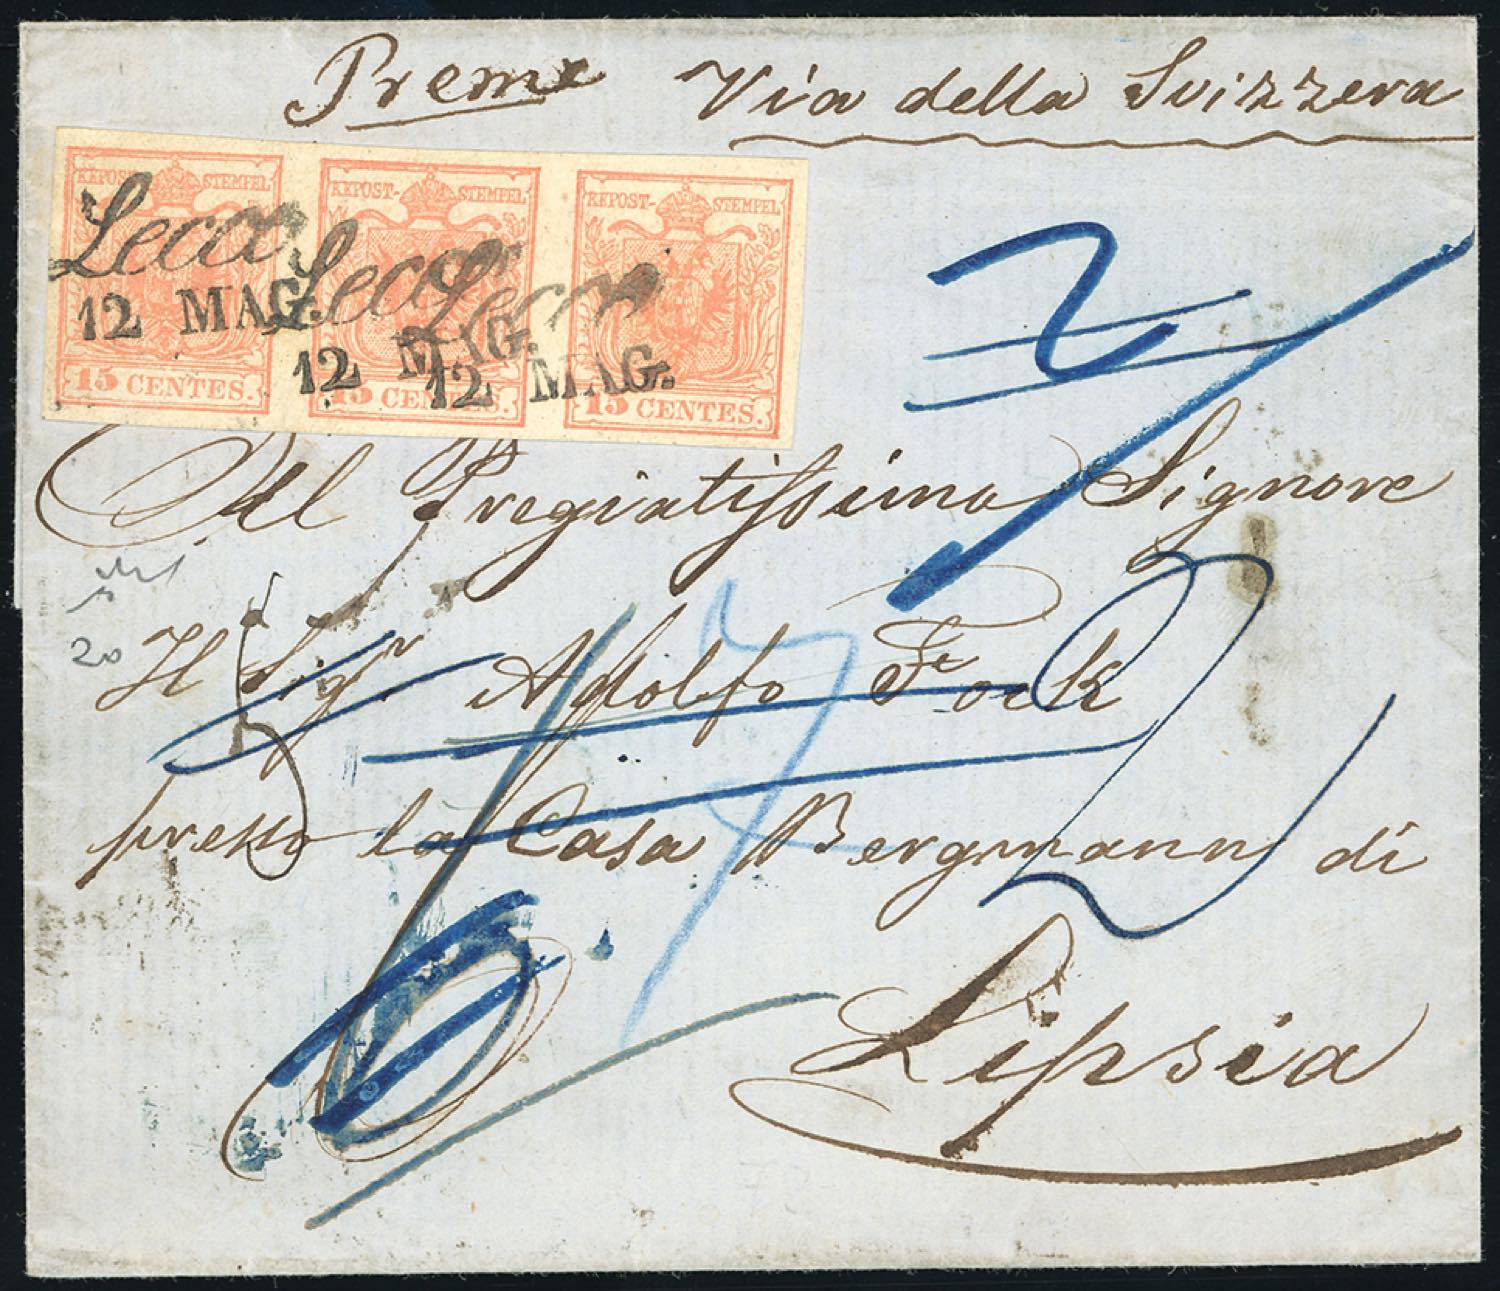 Preme Via della Svizzera
KREPOST- STEMPEL KREPOST- STEMPEL KREPOST- STEMPEL
Lecco Lecco Lecco
12 MAG. 12 MAG. 12 MAG.
15 CENTES. 15 CENTES. 15 CENTES.
2
Al Pregiatissimo Signore
20
Il Sigr Adolfo Fock
presso la Casa Bergmann di
Lipsia